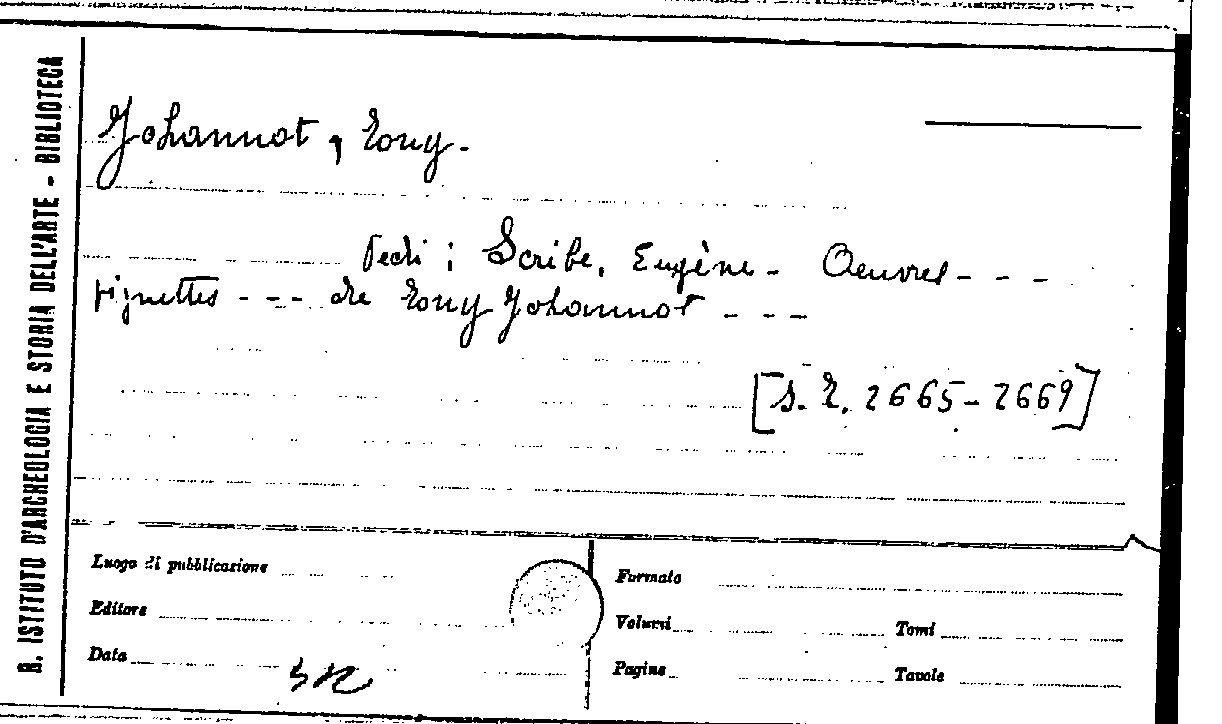 R. ISTITUTO D'ARCHEOLOGIA E STORIA DELL'ARTE - BIBLIOTECA
Johannot, Tony.
Vedi: Scribe, Eugène - Oeuvres - - -
vignettes - - - de Tony Johannot - - -
[S. R. 2665-2669]
Luogo di pubblicazione
Editore
Data
Formato
Volumi Tomi
Pagine Tavole